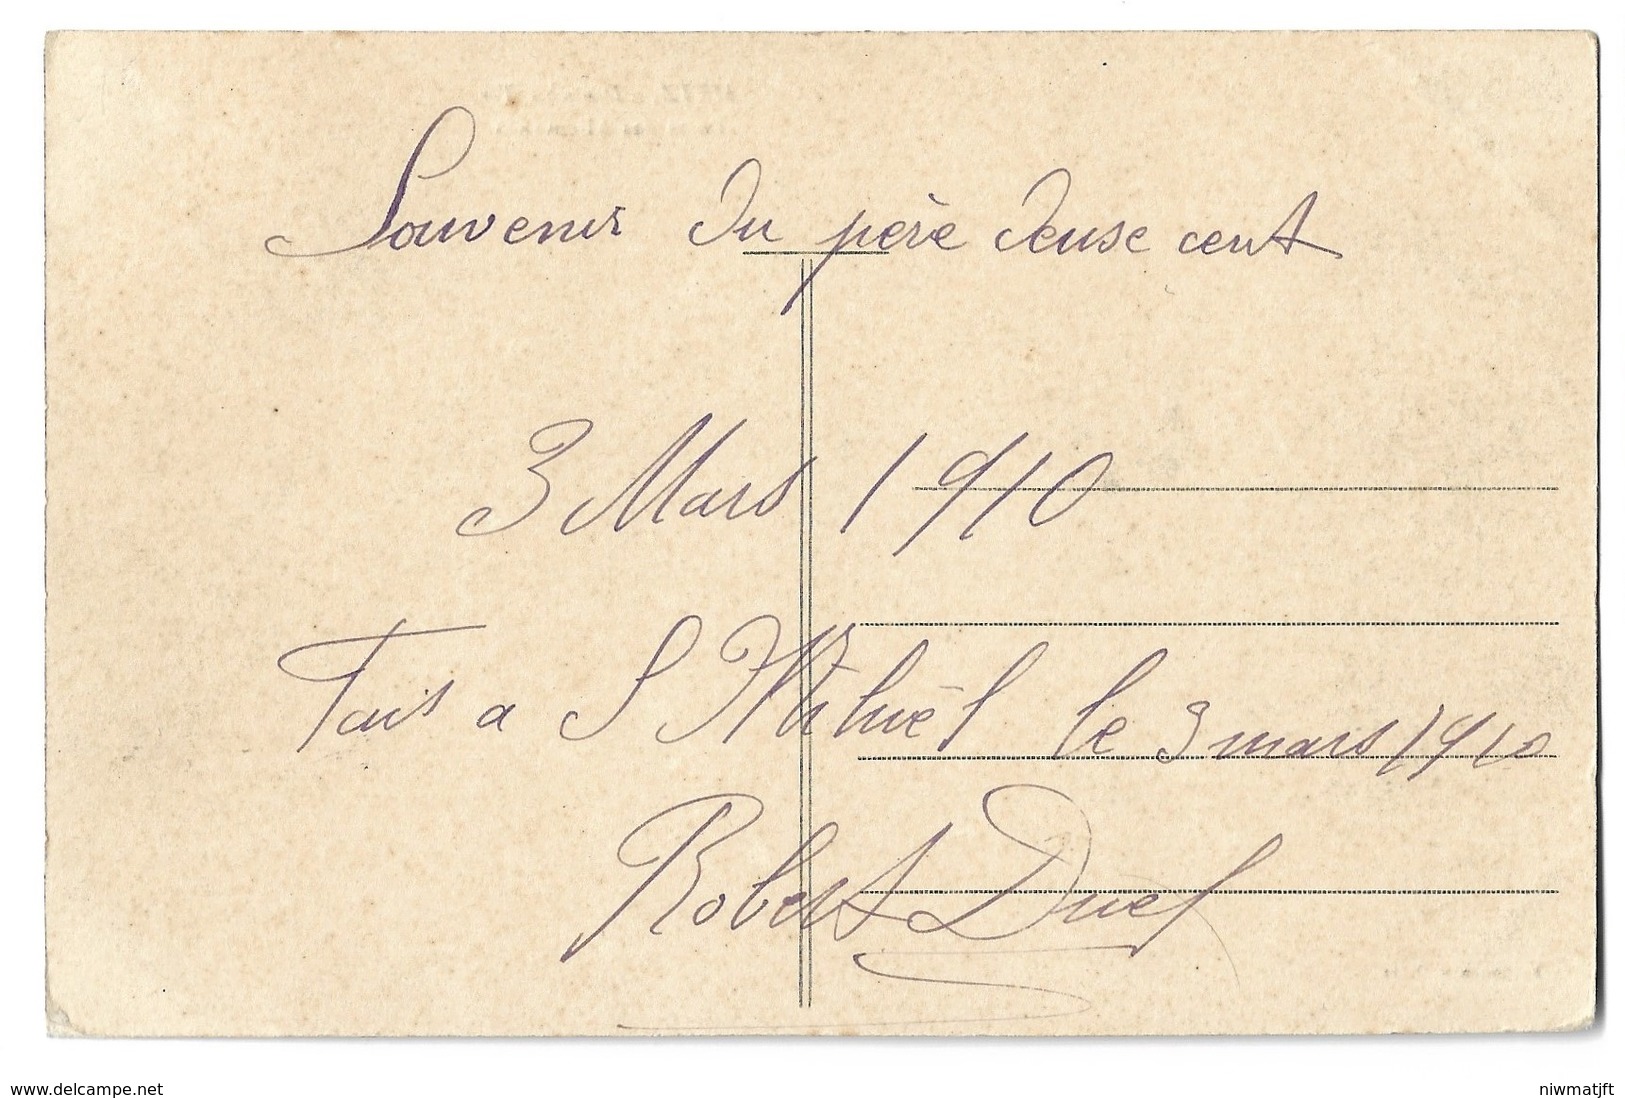 Souvenir du père deuse cent
3 Mars 1910
Fais a S Mihiel le 3 mars 1910
Robert Duel
www.delcampe.net
niwmatjft